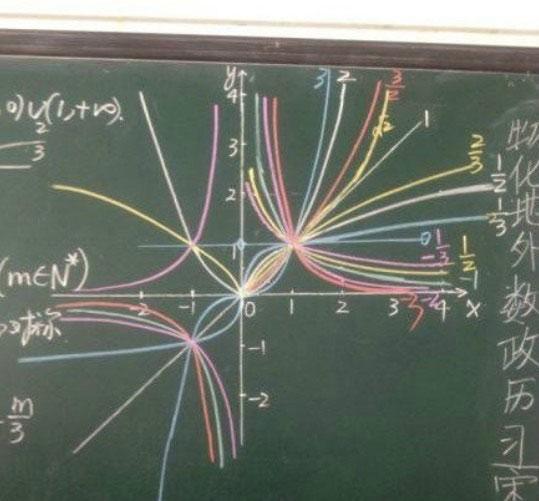 0)∪(1,+∞).
2
3
(m∈N*)
对称
m
3
y
4
3
2
-1
-2
-2
-1
0
1
2
3
4
x
3
2
3/2
√2
1
2/3
1/2
1/3
0
-1/3
1/2
-1
-2
-3
物
化
地
外
数
政
历
习